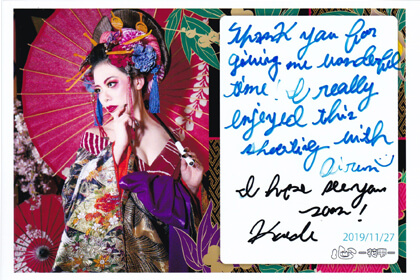 Thank you for
giving me wonderful
time! I really
enjoyed this
shooting with
I hope see you
soon!
2019/11/27